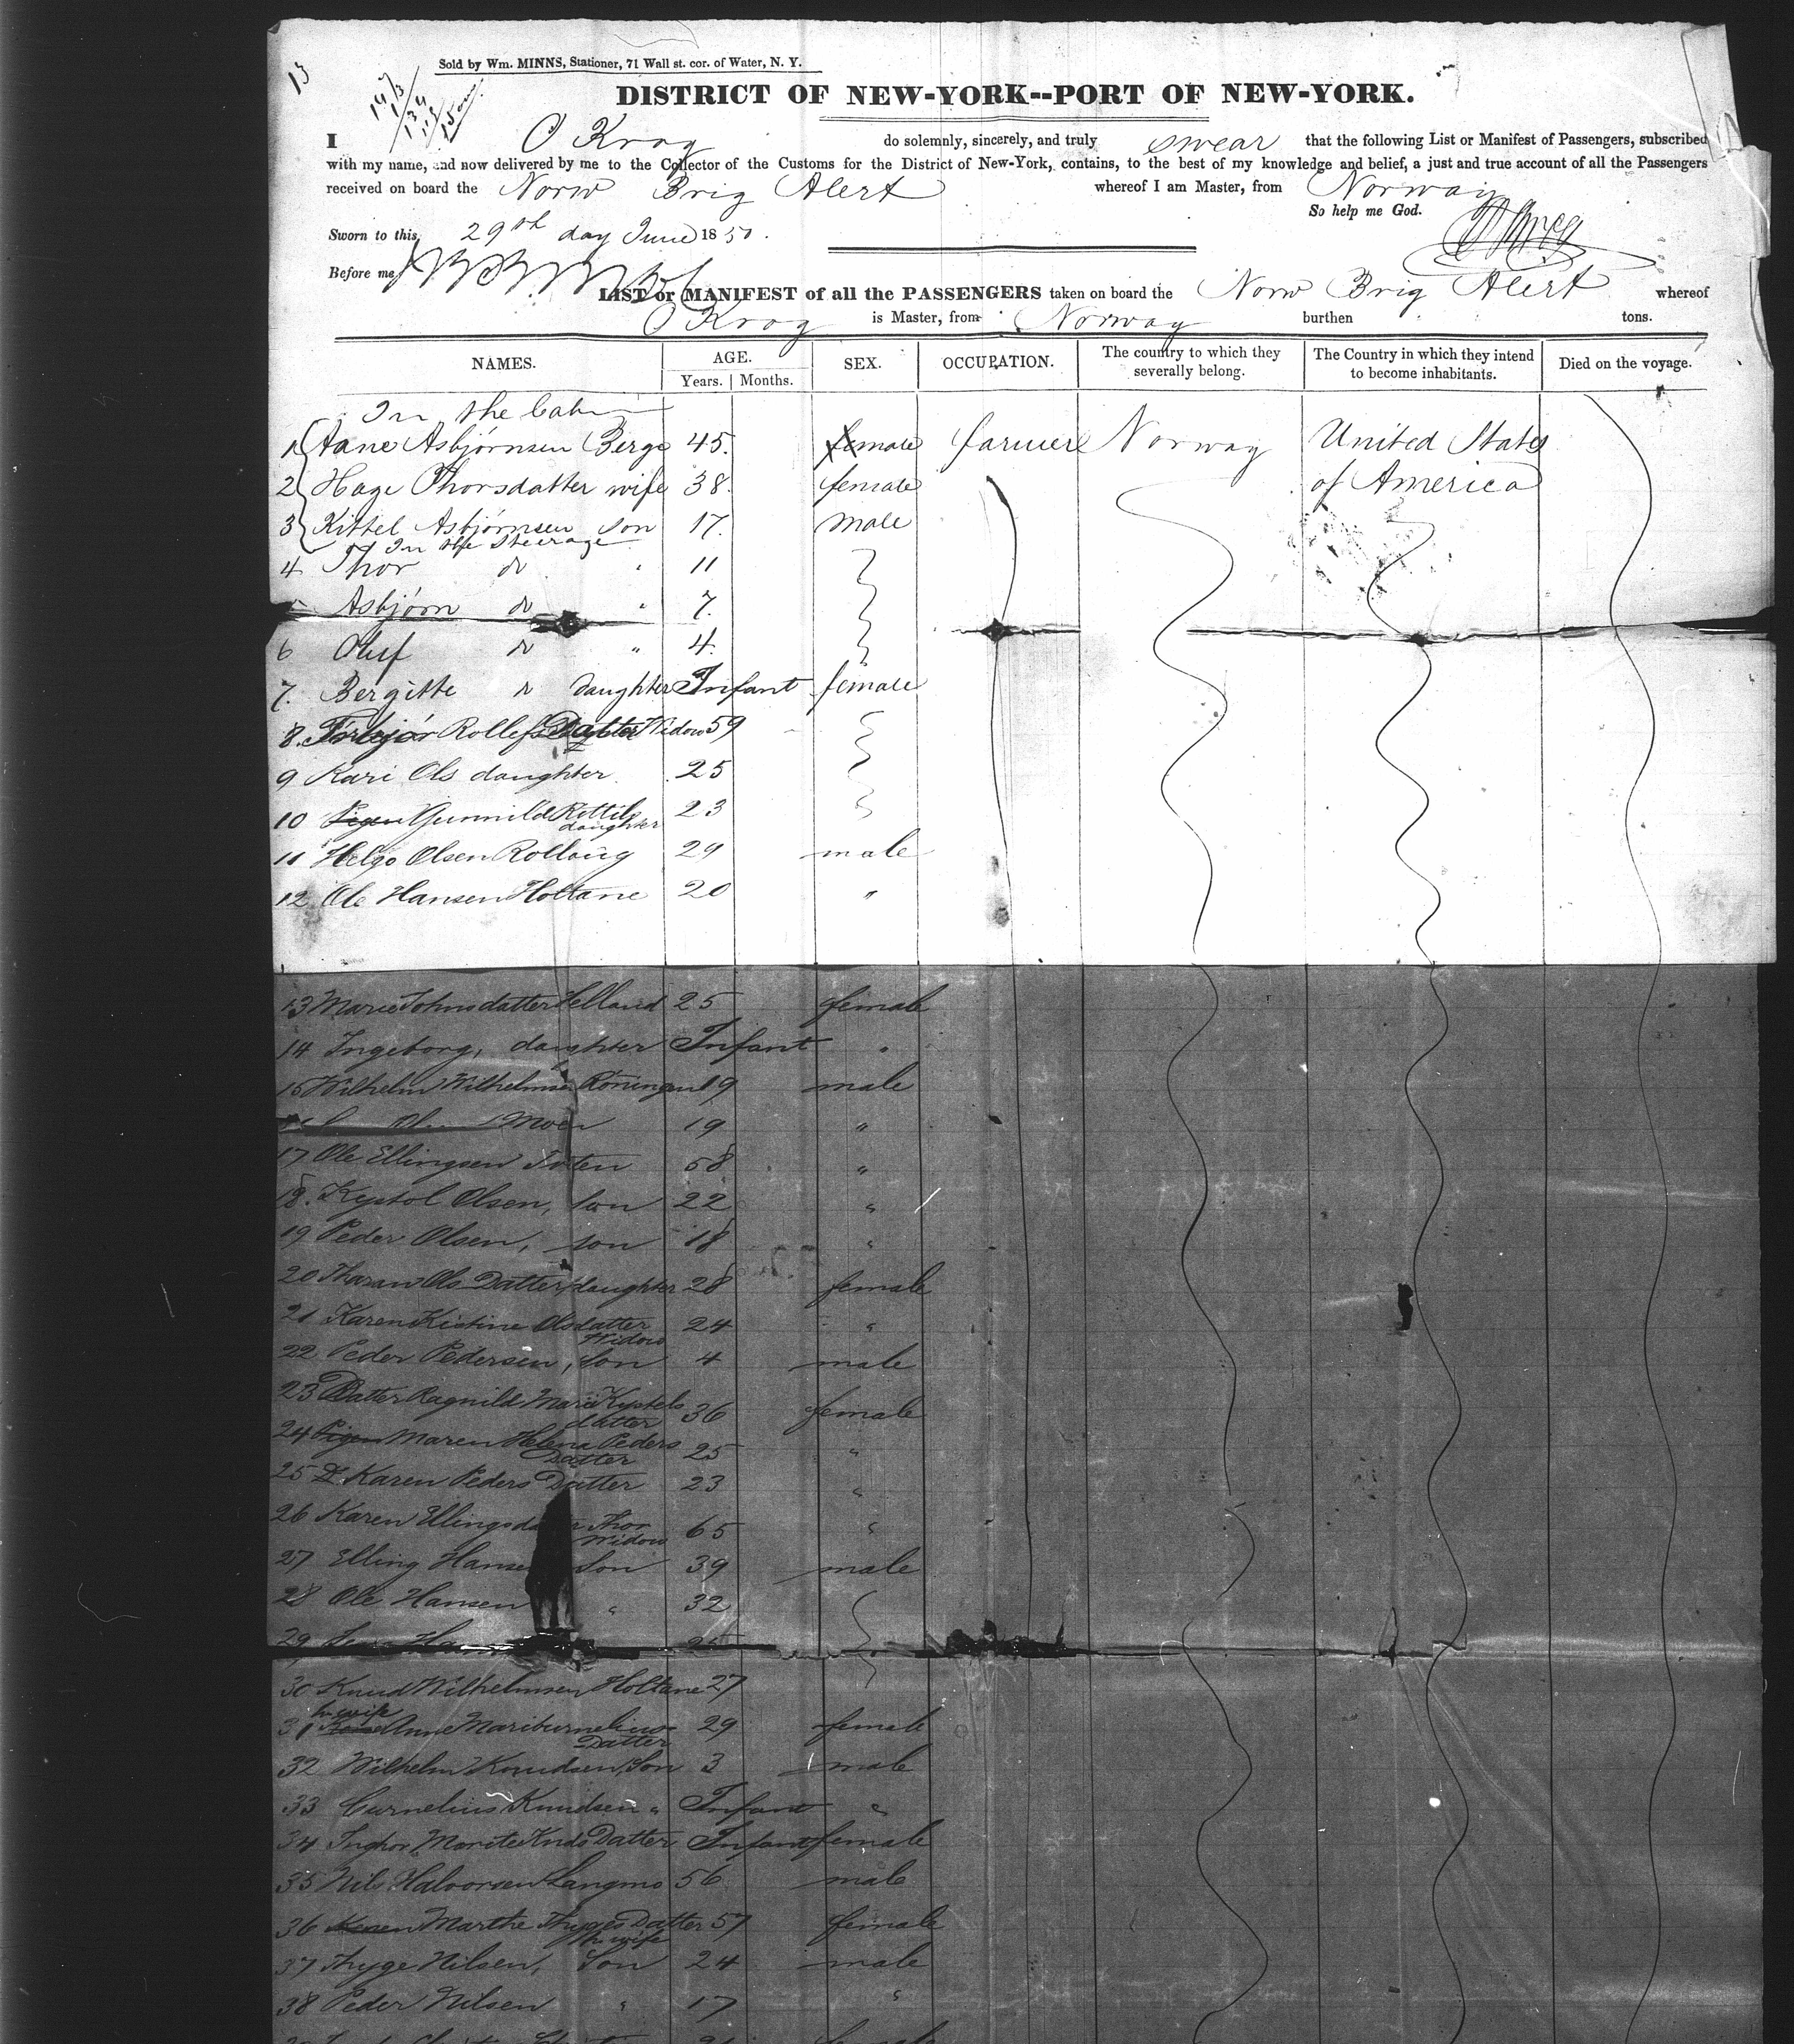 13
Sold by Wm. MINNS, Stationer, 71 Wall st. cor. of Water, N. Y.
DISTRICT OF NEW-YORK--PORT OF NEW-YORK.
I O Krog do solemnly, sincerely, and truly swear that the following List or Manifest of Passengers, subscribed
with my name, and now delivered by me to the Collector of the Customs for the District of New-York, contains, to the best of my knowledge and belief, a just and true account of all the Passengers
received on board the Norw Brig Alert whereof I am Master, from Norway
So help me God.
Sworn to this 29th day June 1850.
Before me
LIST or MANIFEST of all the PASSENGERS taken on board the Norw Brig Alert whereof
O Krog is Master, from Norway burthen tons.
NAMES. AGE. SEX. OCCUPATION. The country to which they severally belong. The Country in which they intend to become inhabitants. Died on the voyage.
Years. Months.
In the Cabin
1 Aane Asbjørnsen Berge 45. male farmer Norway United States
2 Hage Thorsdatter wife 38. female of America
3 Kittel Asbjørnsen son 17. male
In the Steerage
4 Thor do " 11
Asbjørn do " 7.
6 Oluf do " 4.
7. Bergitte do daughter Infant female
8. Rollefs Datter Widow 59
9 Kari Ols daughter 25
10 Pigen Gunnild Kettils daughter 23
11 Helge Olsen Rollaug 29 male
12 Ole Hansen Holtane 20 "
13 Marie Johnsdatter Helland 25 female
14 Ingeborg, daughter Infant "
15 Wilhelm Wilhelmsen Röningen 19 male
Moen 19 "
17 Ole Ellingsen Toten 58 "
18. Kystol Olsen, son 22 "
19 Peder Olsen, son 18 "
20 Ols Datter daughter 28 female
21 Karen Kistine Olsdatter Widow 24 "
22 Peder Pedersen, Son 4 male
23 Datter Ragnild Marie Kystols datter 36 female
24 Pigen Maren Helena Peders Datter 25 "
25 D. Karen Peders Datter 23 "
26 Karen Ellingsda Thor Widow 65 "
27 Elling Hansen Son 39 male
28 Ole Hansen " 32
29 25
30 Knud Wilhelmsen Holtane 27
31 h wife Anne Mari Datter 29 female
32 Wilhelm Knudsen, Son 3 male
33 Curnelius Knudsen " Infant "
34 Marite Knds Datter Infant female
35 Nils Halvorsen Langmo 56 male
36 Marthe Thyges Datter h wife 57 female
37 Thyge Nilsen, Son 24 male
38 Peder Nilsen " 17 "